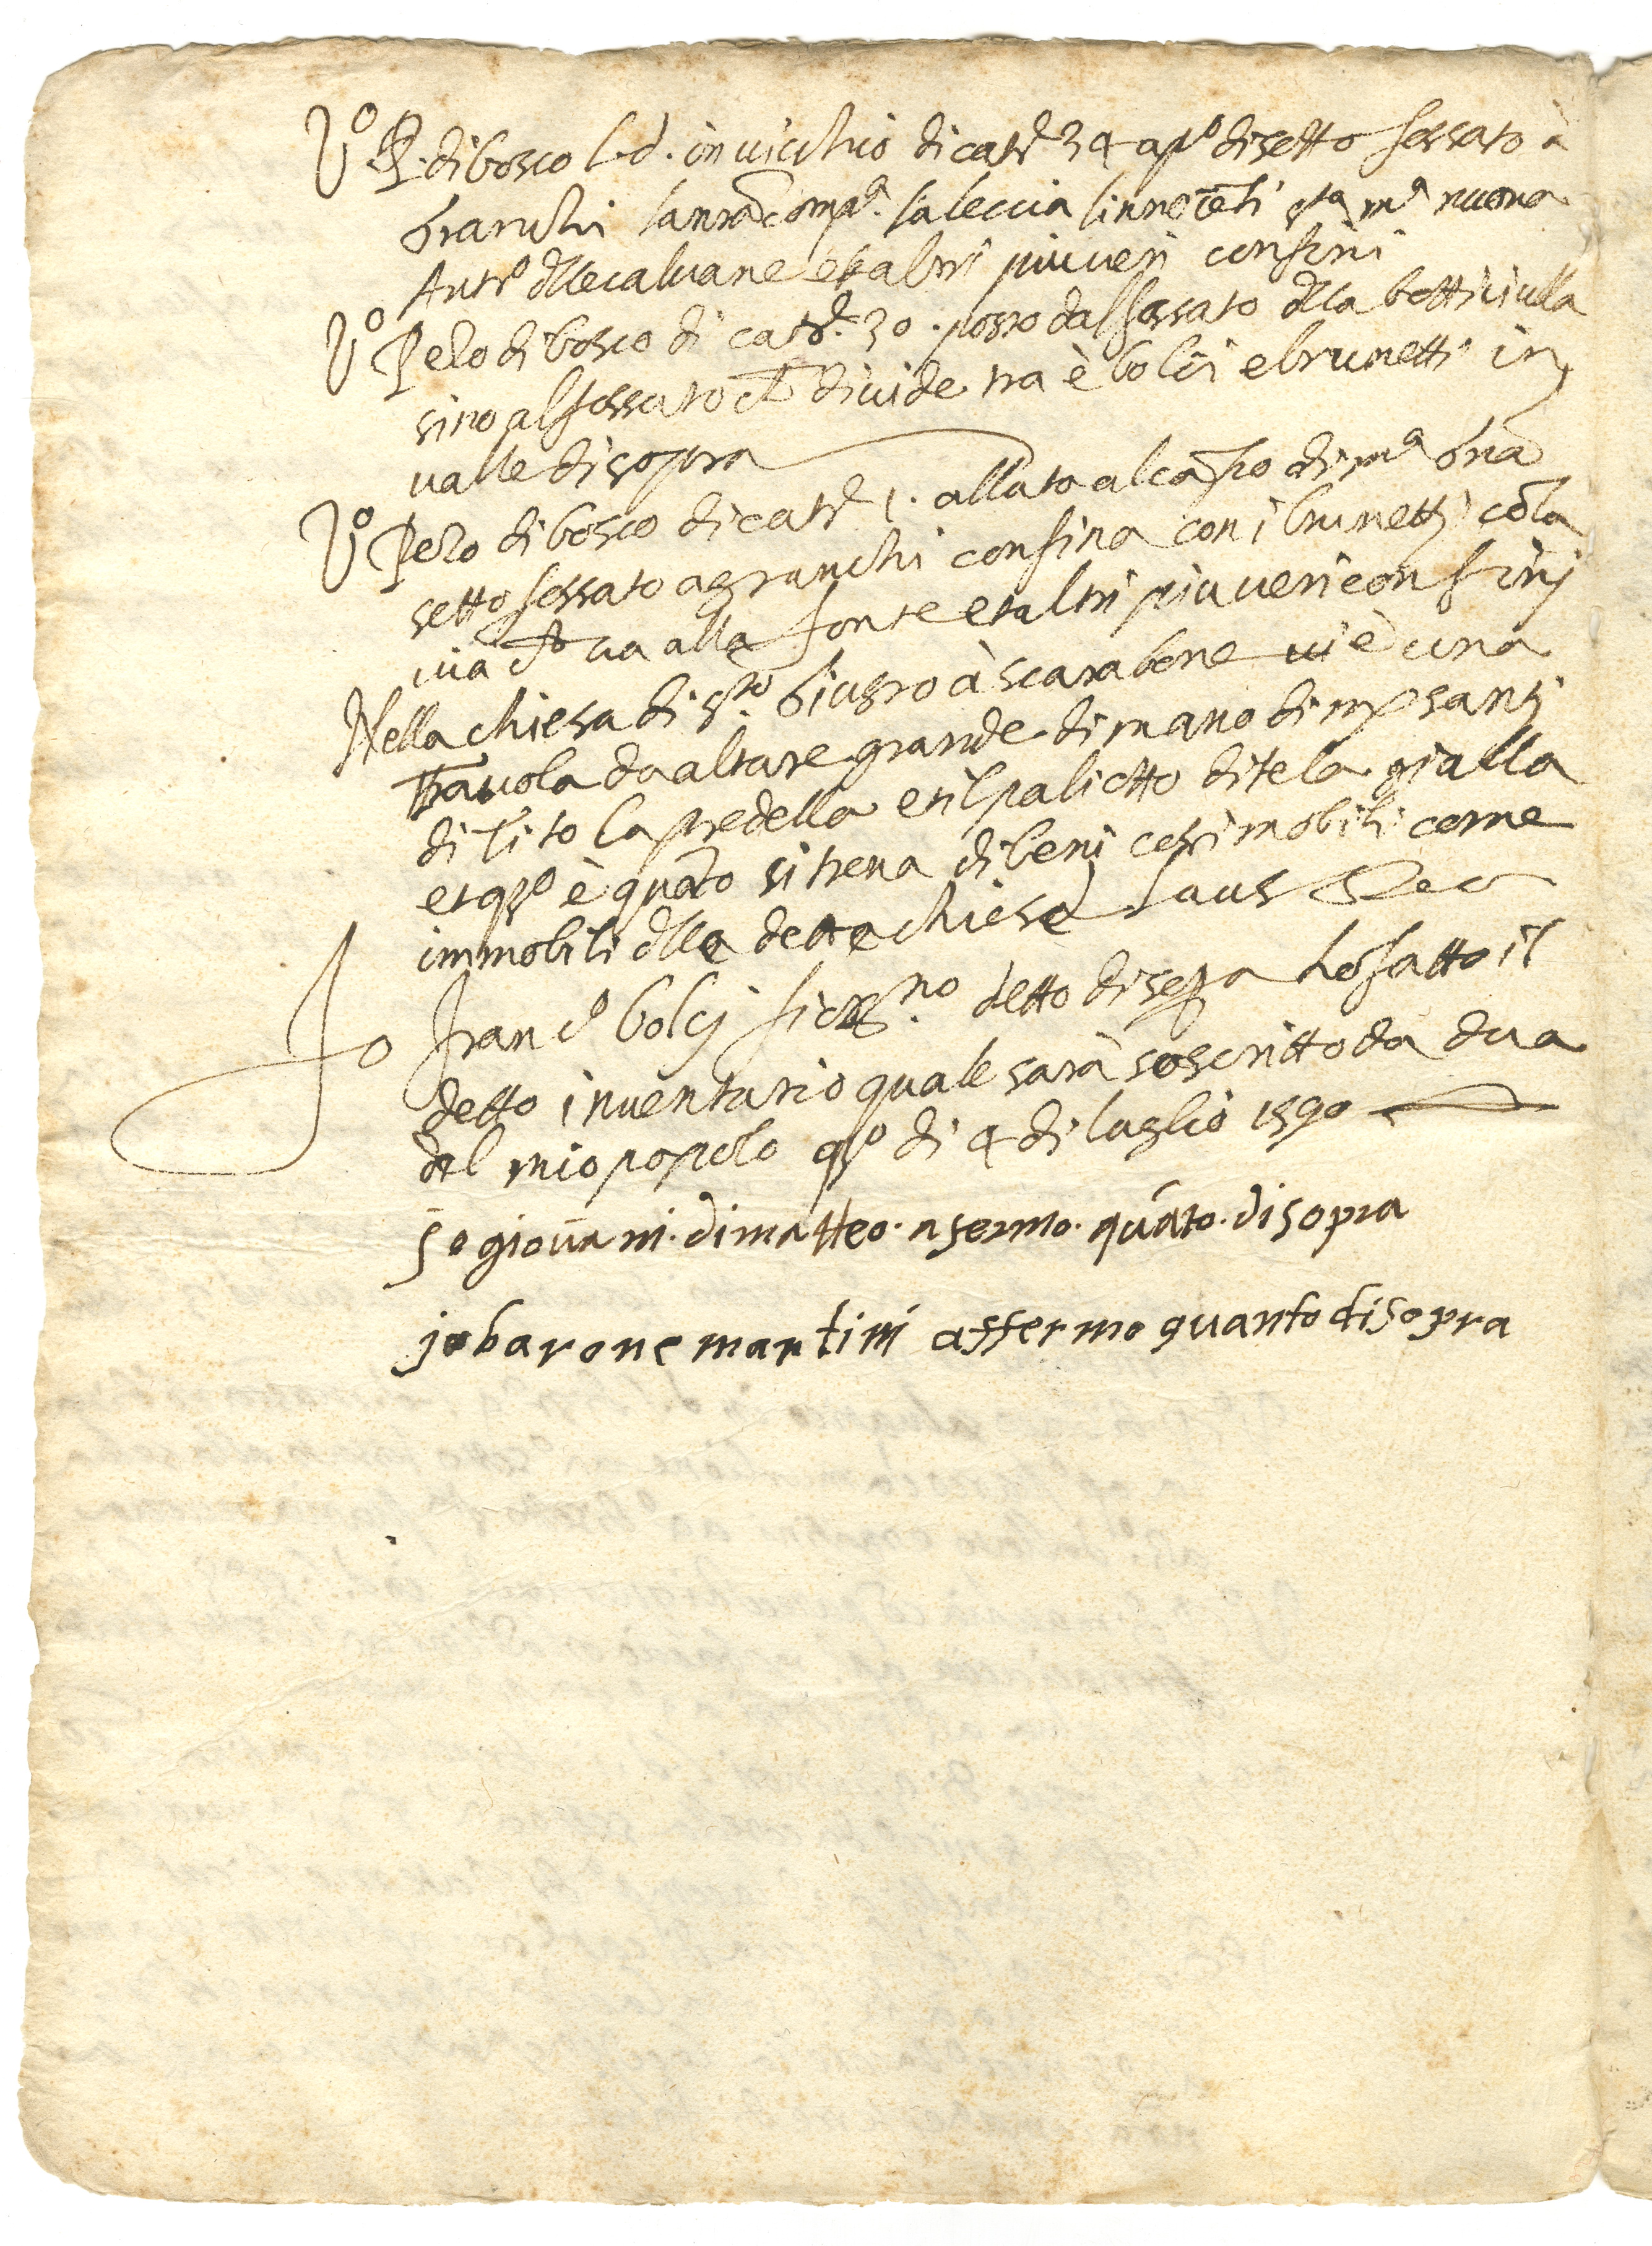 Vº P. di bosco l.d. in vicchio di catrª 34 apº di setto fossato à
Granchi la nrã compª. la leccia l'innocẽti sta mª nuova
Antº dlle calvane et altri piu veri confini
Vº Pezo di bosco di catrª. 30. posto dal fossato dlla botticiulla
sino al fossato ch divide tra è bolci e brunetti in
valle di sopra
Vº Pezo di bosco di catrª 1. allato al cafio di mª
setto fossato a granchi confina con i brunetti cõla
via ch va alla fonte et altri piu veri confini
Nella chiesa di s.to Giusto à scarabone vi è una
Tavola da altare grande di mano di mp santi
di Tito la predella et il paliotto di tela gialla
et qsº è quãto si trova di beni cosi mobili come
immobili dlla detta chiesa Laus Deo
Io Francº bolcj fior.no detto di sopra ho fatto il
detto inventario quale sarà soscritto da dua
del mio popolo qsº di 4 di luglio 1590
Io giovãni. di matteo. afermo. quãto. di sopra
jo barone martini affermo quanto di sopra